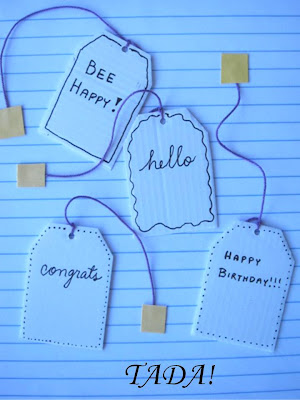 BEE
HAPPY!
hello
congrats
HAPPY
BIRTHDAY!!!
TADA!